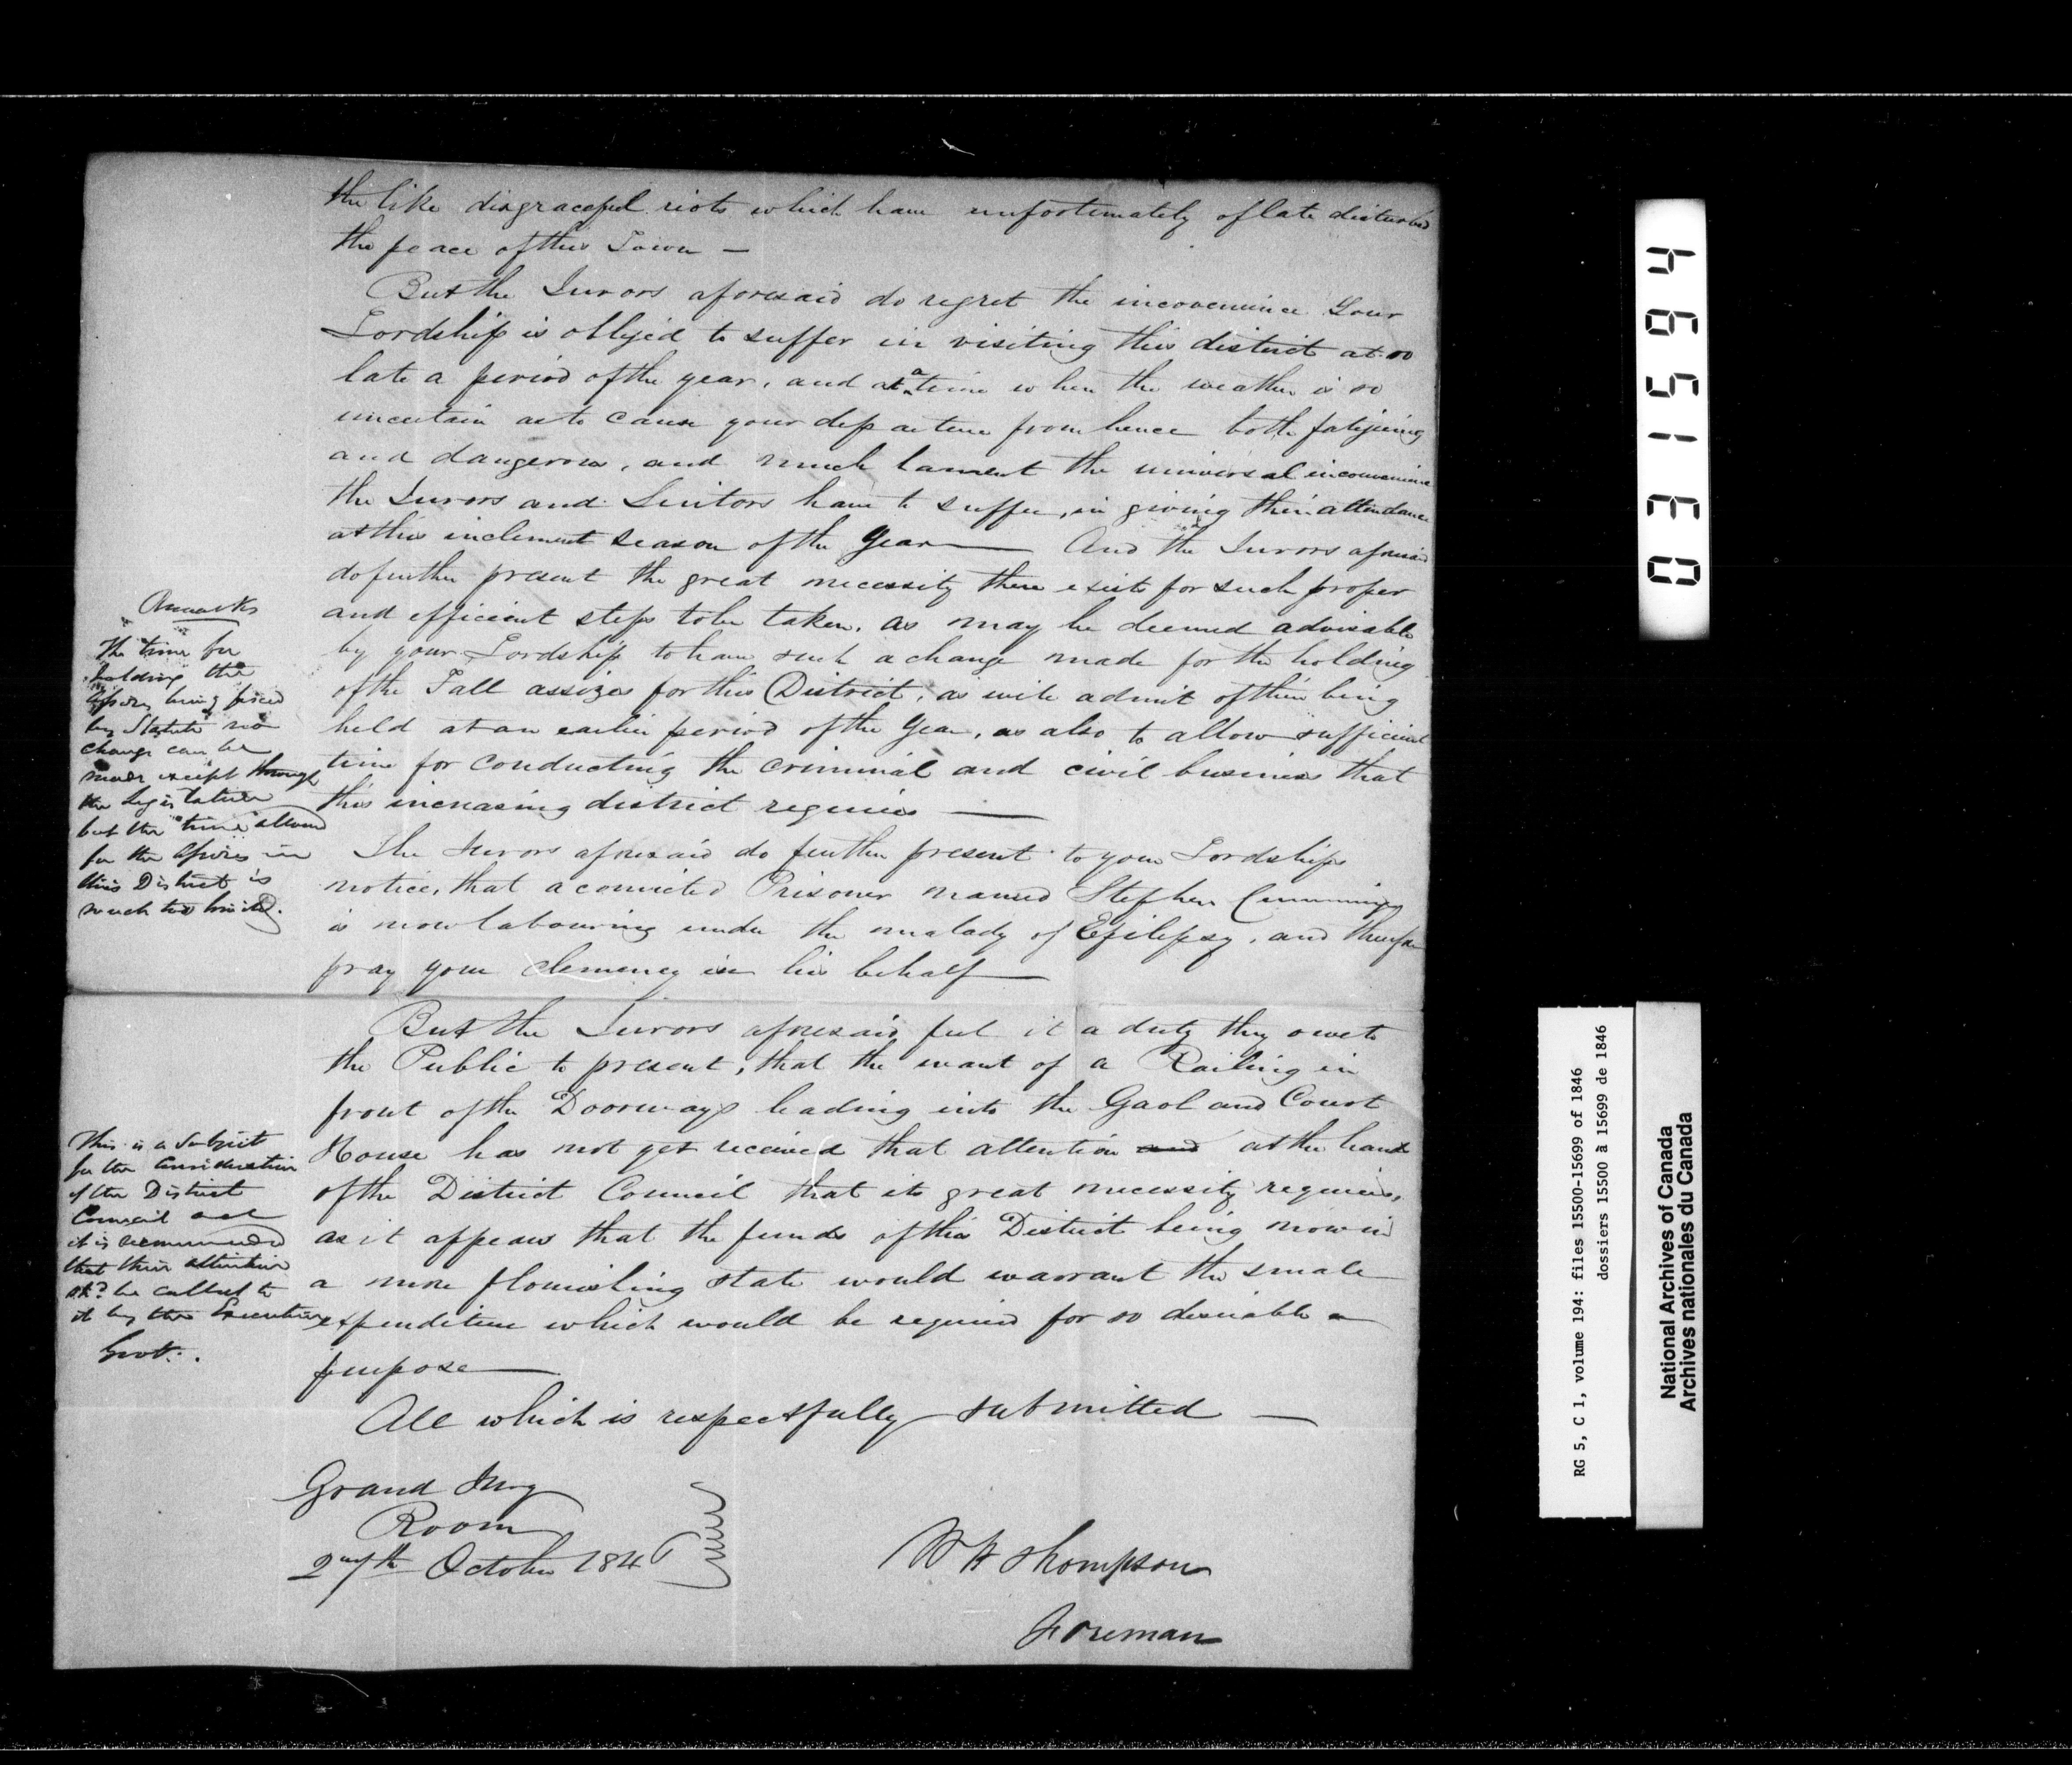 the like disgraceful riots which have unfortunately of late disturbed
the peace of this Town —
But the Jurors aforesaid do regret the inconvenience Your
Lordship is obliged to suffer in visiting this district at so
late a period of the year, and at a time when the weather is so
uncertain as to cause your departure from hence both fatiguing
and dangerous, and much lament the universal inconvenience
the Jurors and Suitors have to suffer, in giving their attendance
at this inclement season of the Year — And the Jurors aforesaid
do further present the great necessity there exists for such proper
and efficient steps to be taken, as may be deemed advisable
by your Lordship to have such a change made for the holding
of the Fall assizes for this District, as will admit of their being
held at an earlier period of the Year, as also to allow sufficient
time for conducting the criminal and civil business that
this increasing district requires —
The Jurors aforesaid do further present to your Lordships
notice, that a convicted Prisoner named Stephen Cummings
is now labouring under the malady of Epilepsy, and therefore
pray your clemency in his behalf —
But the Jurors aforesaid feel it a duty they owe to
the Public to present, that the want of a Railing in
front of the Doorways leading into the Gaol and Court
House has not yet received that attention and at the hands
of the District Council that its great necessity requires,
as it appears that the funds of this District being now in
a more flourishing state would warrant the small
expenditure which would be required for so desirable a
purpose —
All which is respectfully submitted —
Grand Jury
Room
27th October 1846
W H Thompson
Foreman
Remarks
The time for
holding the
Assizes being fixed
by Statute no
change can be
made except through
the Legislature
but the time allowed
for the Assizes in
this District is
much too limited.
This is a Subject
for the Consideration
of the District
Council and
it is recommended
that their attention
shd. be called to
it by the Executive
Govt.
031594
RG 5, C 1, volume 194: files 15500-15699 of 1846
dossiers 15500 à 15699 de 1846
National Archives of Canada
Archives nationales du Canada